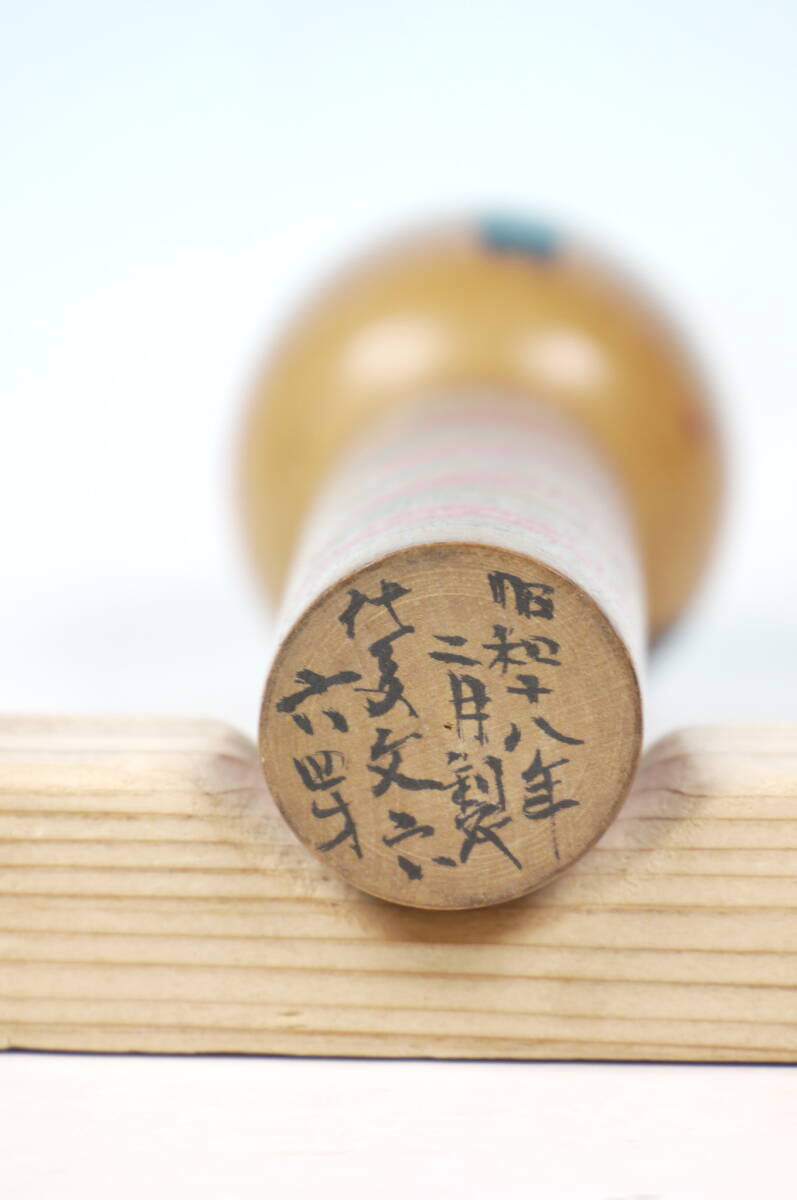 昭和十八年
二月製
文六
六四才